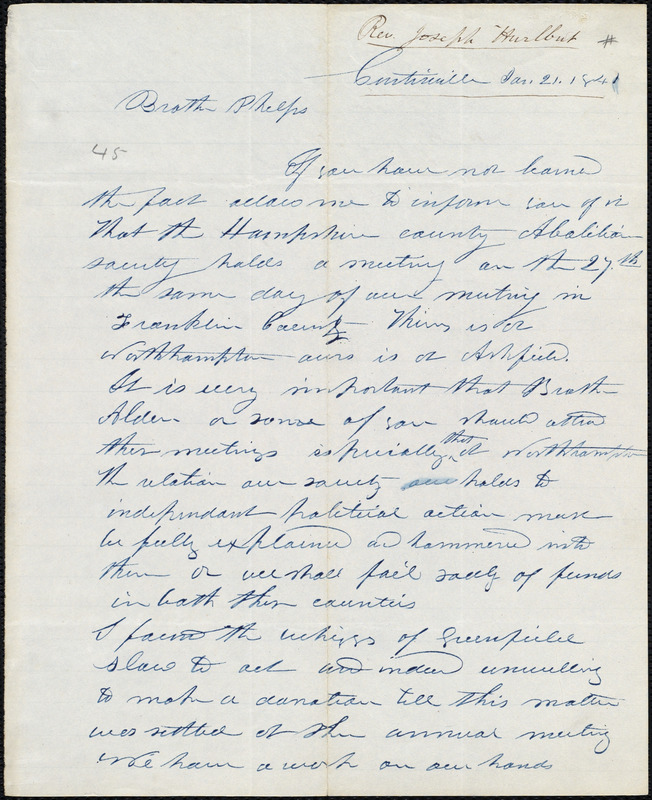 Rev. Joseph Hurlbut #
Curtisville Jan. 21. 1841
Broth Phelps
45
If you have not learned
the fact allow me to inform you of it
that the Hampshire county Abolition
society holds a meeting on the 27.th
the same day of our meeting in
Franklin County Theirs is at
Northhampton ours is at Ashfield.
It is very important that Broth
Alden or some of you should attend
these meetings especially that at Northhampton
the relation our society holds to
independant political action must
be fully explained and hammered into
them or we shall fail sadly of funds
in both these counties
I found the whiggs of Greenfield
slow to act and indeed unwilling
to make a donation till this matter
was settled at the annual meeting
We have a work on our hands